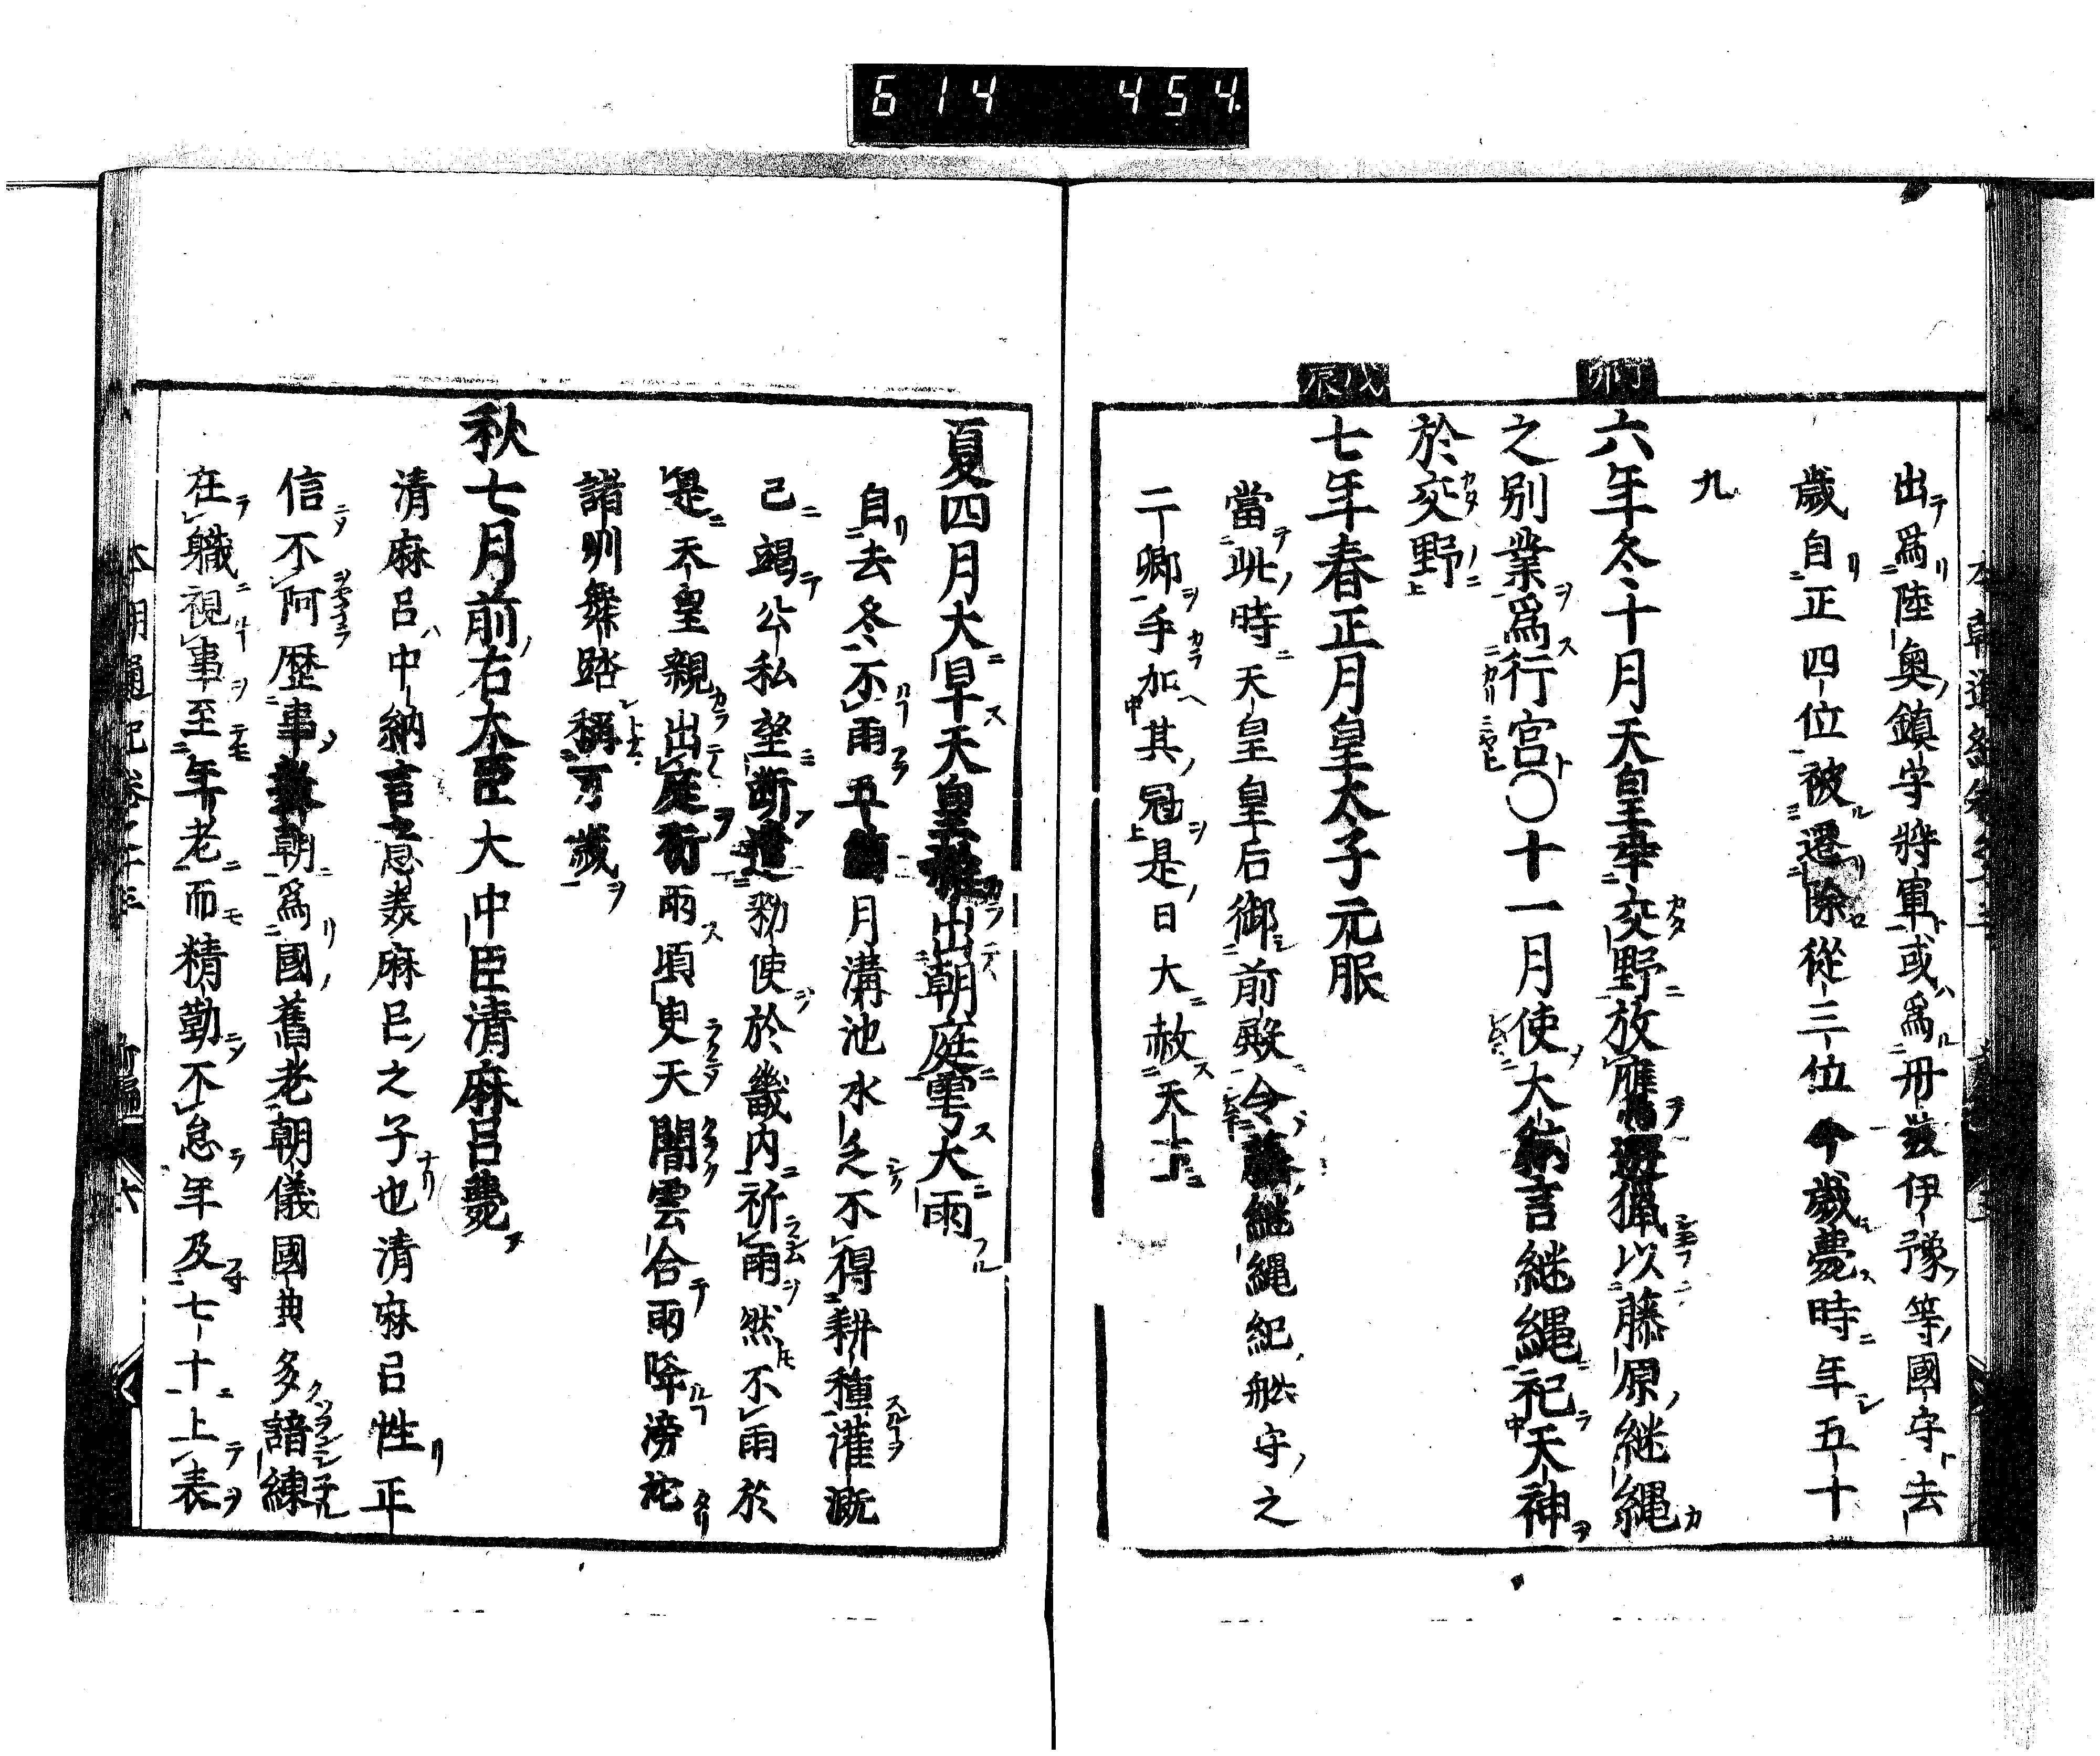 614 454
出爲陸奥鎮守將軍或爲丹波伊豫等國守去
歳自正四位被還除從三位今歳薨時年五十
九
丁卯
六年冬十月天皇幸交野放鷹遊猟以藤原継縄
之別業爲行宮〇十一月使大納言継縄祀天神
於交野
戊辰
七年春正月皇太子元服
當此時天皇皇后御前殿令藤継縄紀舩守之
二卿手加其冠是日大赦天下
夏四月大旱天皇親出朝庭雩大雨
自去冬不雨五箇月溝池水乏不得耕種灌漑
已竭公私望断遣勅使於畿内祈雨然不雨於
是天皇親出庭祈雨須臾天闇雲合雨降滂沱
諸司舞踏稱万歳
秋七月前右大臣大中臣清麻呂薨
清麻呂中納言意美麻呂之子也清麻呂性正
信不阿歴事数朝爲國舊老朝儀國典多諳練
在職視事至年老而精勤不怠年及七十上表